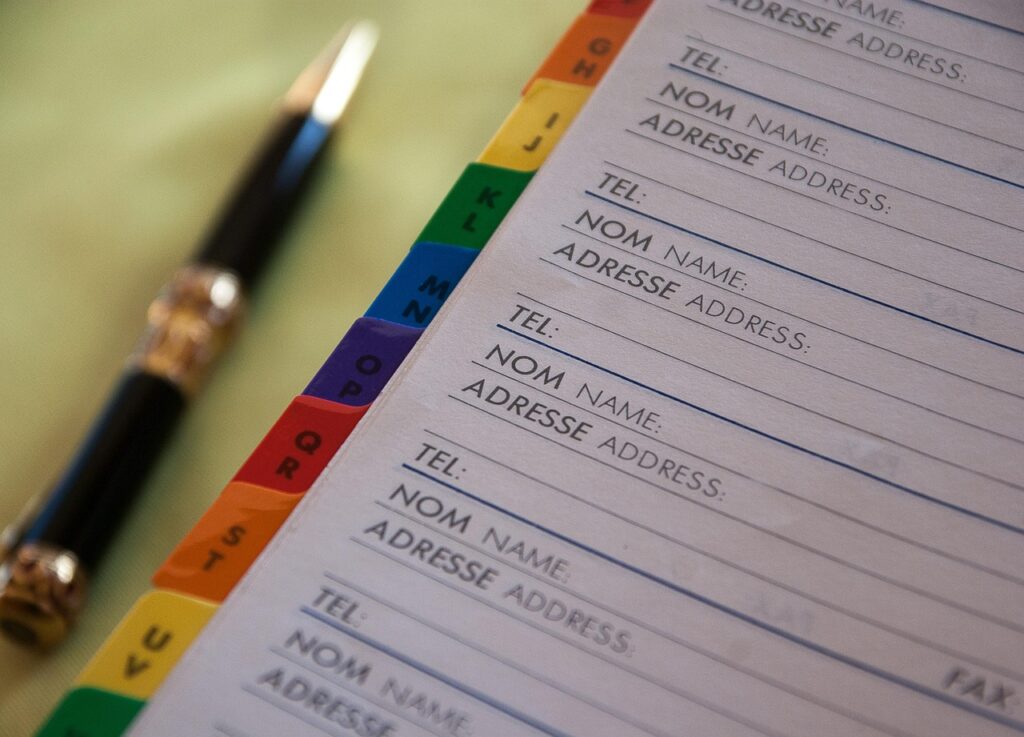 NAME:
ADRESSE ADDRESS:
TEL:
NOM NAME:
ADRESSE ADDRESS:
TEL:
NOM NAME:
ADRESSE ADDRESS:
TEL:
NOM NAME:
ADRESSE ADDRESS:
TEL:
NOM NAME:
ADRESSE ADDRESS:
FAX:
TEL:
NOM NAME:
ADRESSE
G
H
I
J
K
L
M
N
O
P
Q
R
S
T
U
V